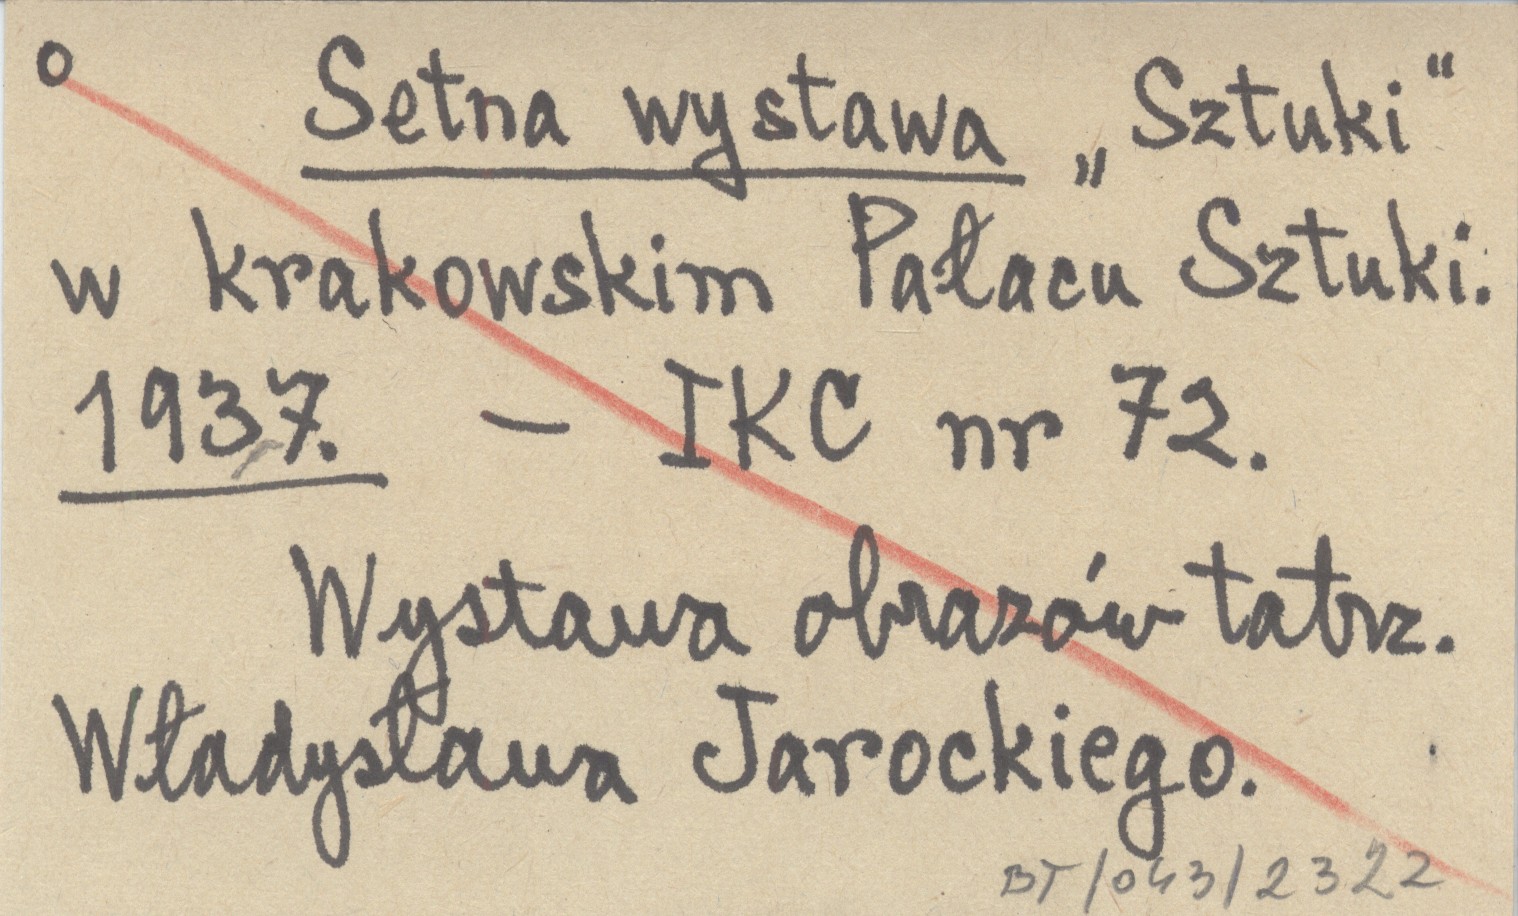 o Setna wystawa „Sztuki“
w krakowskim Pałacu Sztuki.
1937. – IKC nr 72.
Wystawa obrazów tatrz.
Władysława Jarockiego.
BT/043/2322